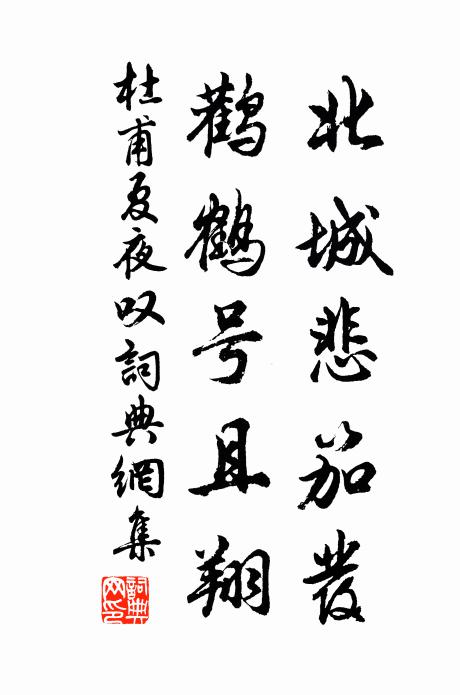 北城悲笳發
鸛鶴号且翔
杜甫夏夜叹詞典網集
詞典网印